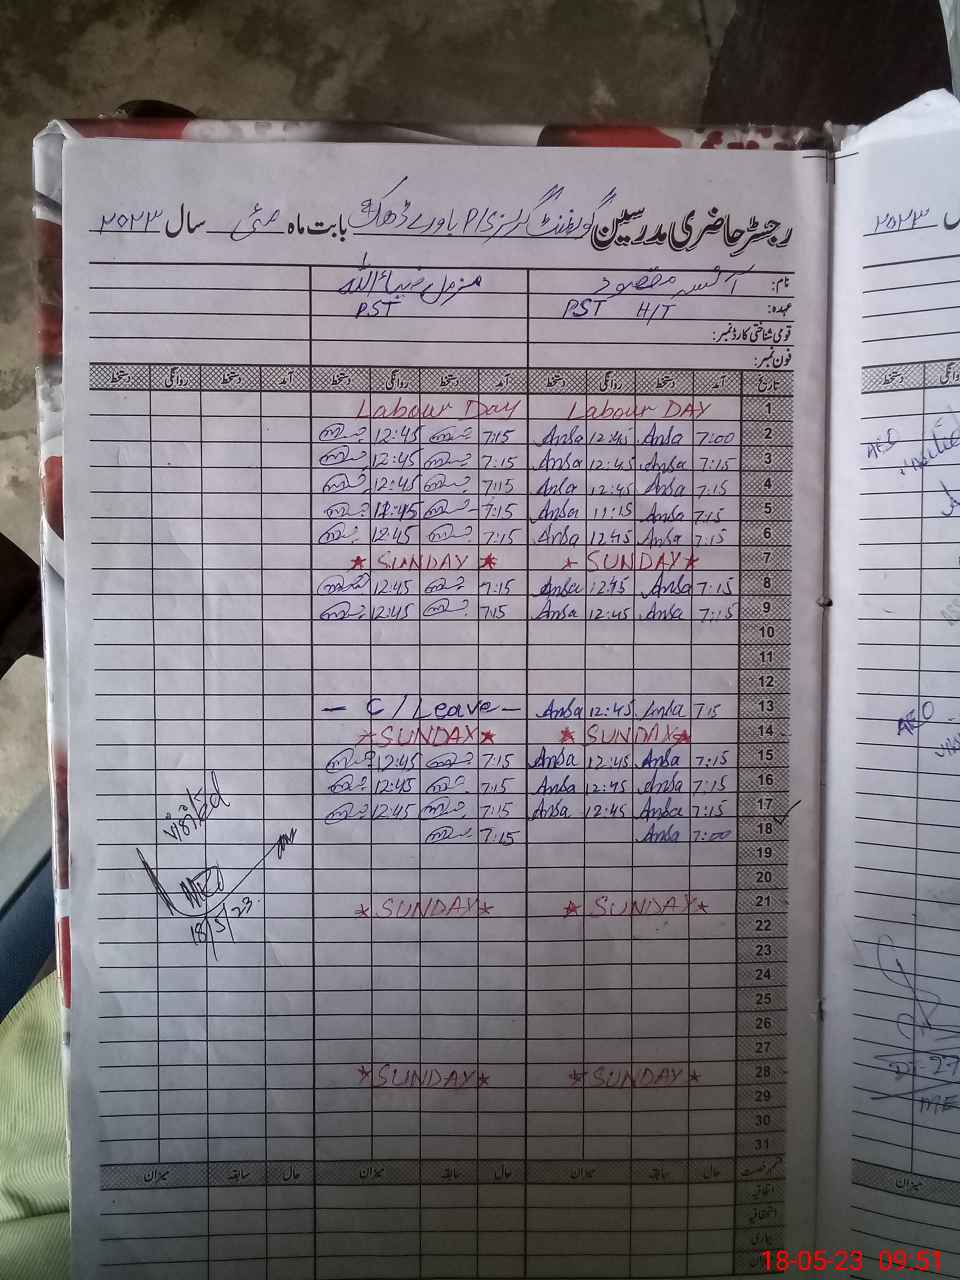 رجسٹر حاضری مدرسین گورنمنٹ گرلز P/S باورے ڈھاکہ بابت ماہ مئی سال ۲۰۲۳
نام: آنسہ مقصود مزمل ضیاء اللہ
عہدہ: PST H/T PST
قومی شناختی کارڈ نمبر:
فون نمبر:
تاریخ آمد دستخط روانگی دستخط آمد دستخط روانگی دستخط آمد دستخط روانگی دستخط
1 Labour DAY Labour Day
2 7:00 Ansa 12:45 Ansa 7:15 12:45
3 7:15 Ansa 12:45 Ansa 7:15 12:45
4 7:15 Ansa 12:45 Ansa 7:15 12:45
5 7:15 Ansa 11:15 Ansa 7:15
6 7:15 Ansa 12:45 Ansa 7:15 12:45
7 SUNDAY SUNDAY
8 7:15 Ansa 12:45 Ansa 7:15 12:45
9 7:15 Ansa 12:45 Ansa 7:15 12:45
10
11
12
13 7:15 Ansa 12:45 Ansa - C/Leave -
14 SUNDAY SUNDAY
15 7:15 Ansa 12:45 Ansa 7:15 12:45
16 7:15 Ansa 12:45 Ansa 7:15 12:45
17 7:15 Ansa 12:45 Ansa 7:15 12:45
18 7:00 Ansa 7:15
19
20
21 SUNDAY SUNDAY
22
23
24
25
26
27
28 SUNDAY SUNDAY
29
30
31
visited
18/5/23.
حال سابقہ میزان حال سابقہ میزان حال سابقہ میزان
اتفاقیہ
استحقاقیہ
بیماری
۲۰۲۳
دستخط
AEO
visited
AEO
میزان
18-05-23 09:51